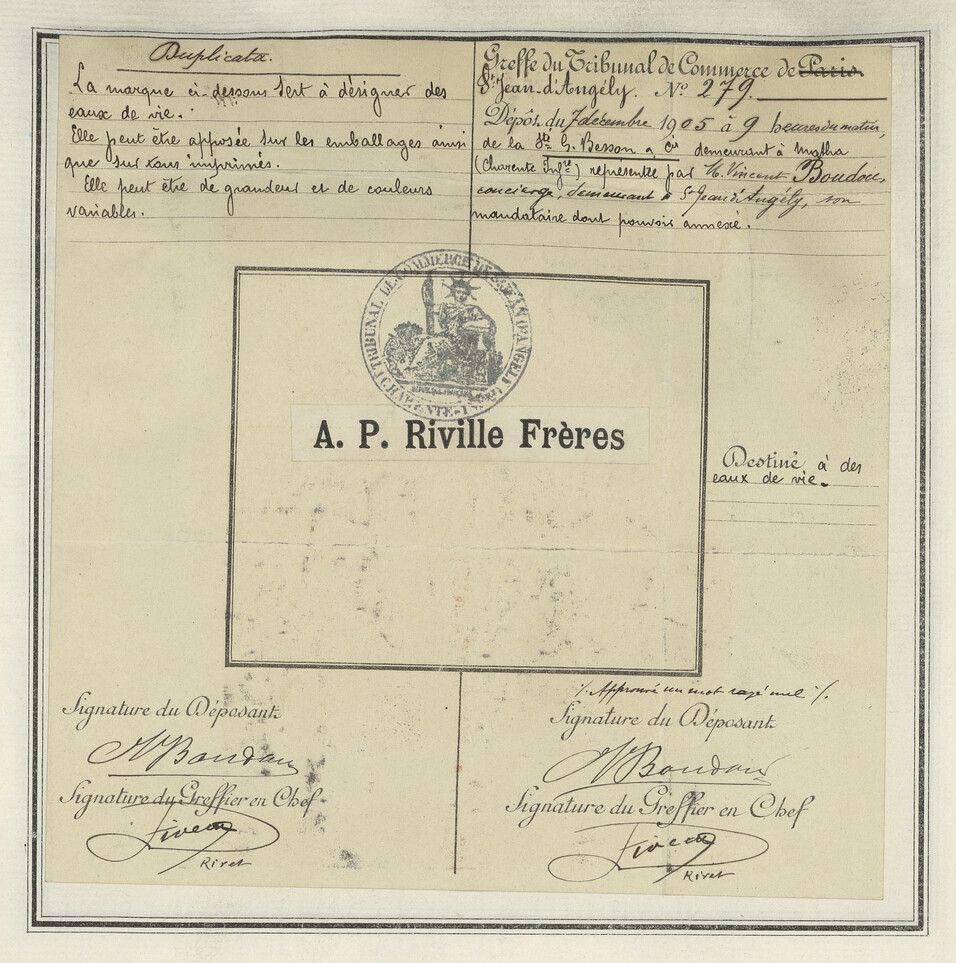 Duplicata.
La marque ci-dessous sert à désigner des
eaux de vie.
Elle peut être apposée sur les emballages ainsi
que sur tous imprimés.
Elle peut être de grandeur et de couleurs
variables.
Greffe du Tribunal de Commerce de Paris.
St Jean-d'Angély. No 279.
Dépôt du 7 décembre 1905 à 9 heures du matin,
de la Sté G. Besson & Cie demeurant à Matha
(Charente Infre) représentée par M. Vincent Boudou,
concierge, demeurant à St Jean d'Angély, son
mandataire dont pouvoir annexé.
TRIBUNAL DE COMMERCE DE ST JEAN D'ANGELY
(CHARENTE-INFre)
A. P. Riville Frères
Destiné à des
eaux de vie.
Signature du Déposant
VBoudou
Signature du Greffier en Chef
Rivet
./. Approuvé un mot rayé nul ./.
Signature du Déposant
VBoudou
Signature du Greffier en Chef
Rivet